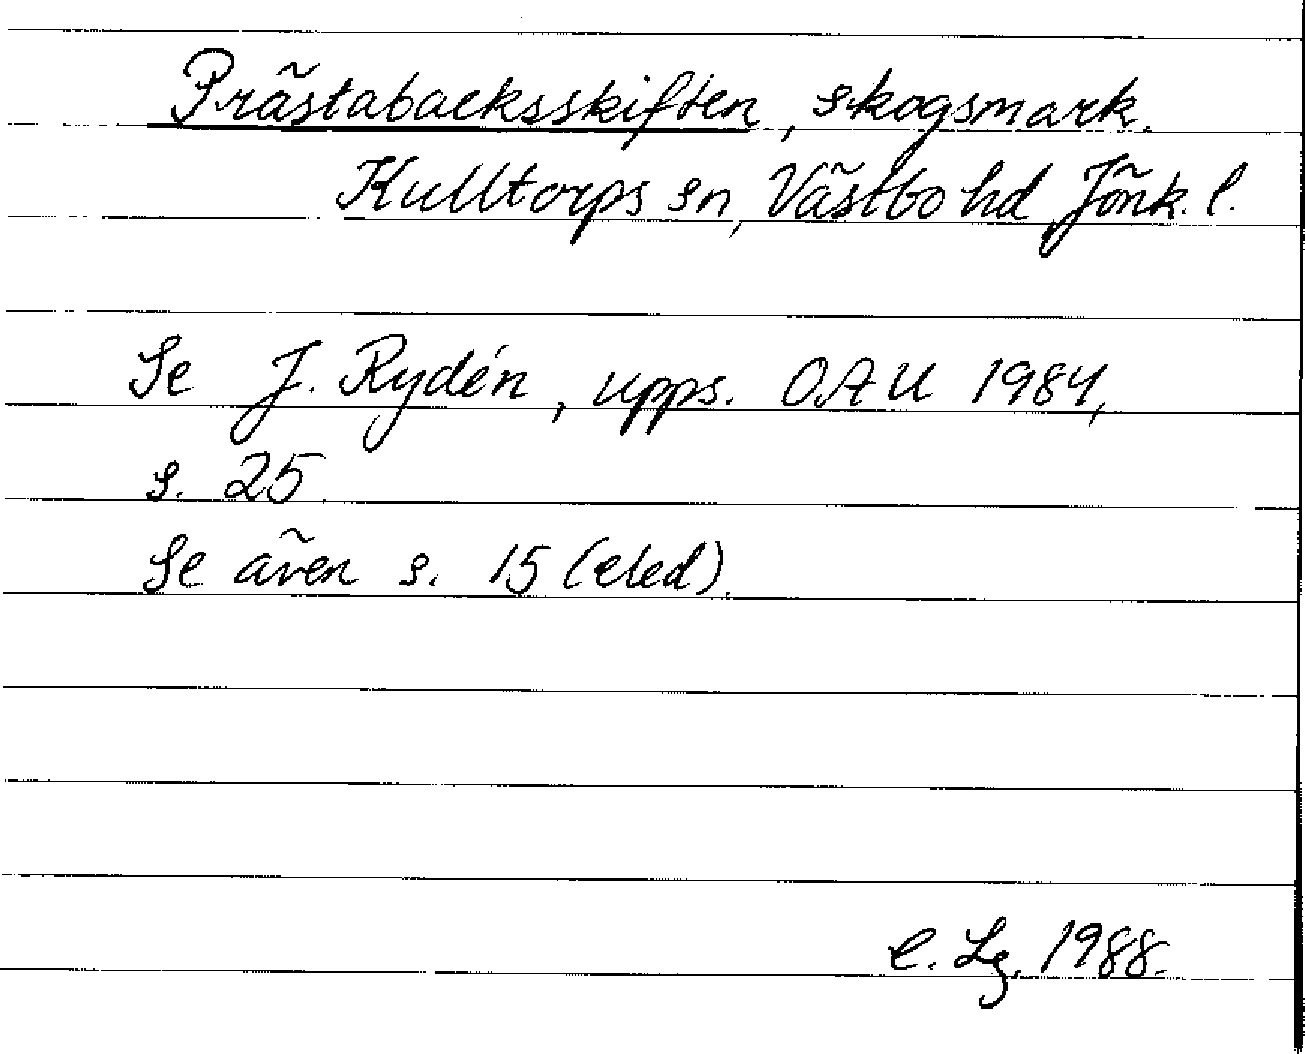 Prästabacksskiften, skogsmark.
Kulltorps sn, Västbo hd Jönk. l.
Se J. Rydén, upps. OAU 1984,
s. 25.
Se även s. 15 (eled).
C. Lg. 1988.